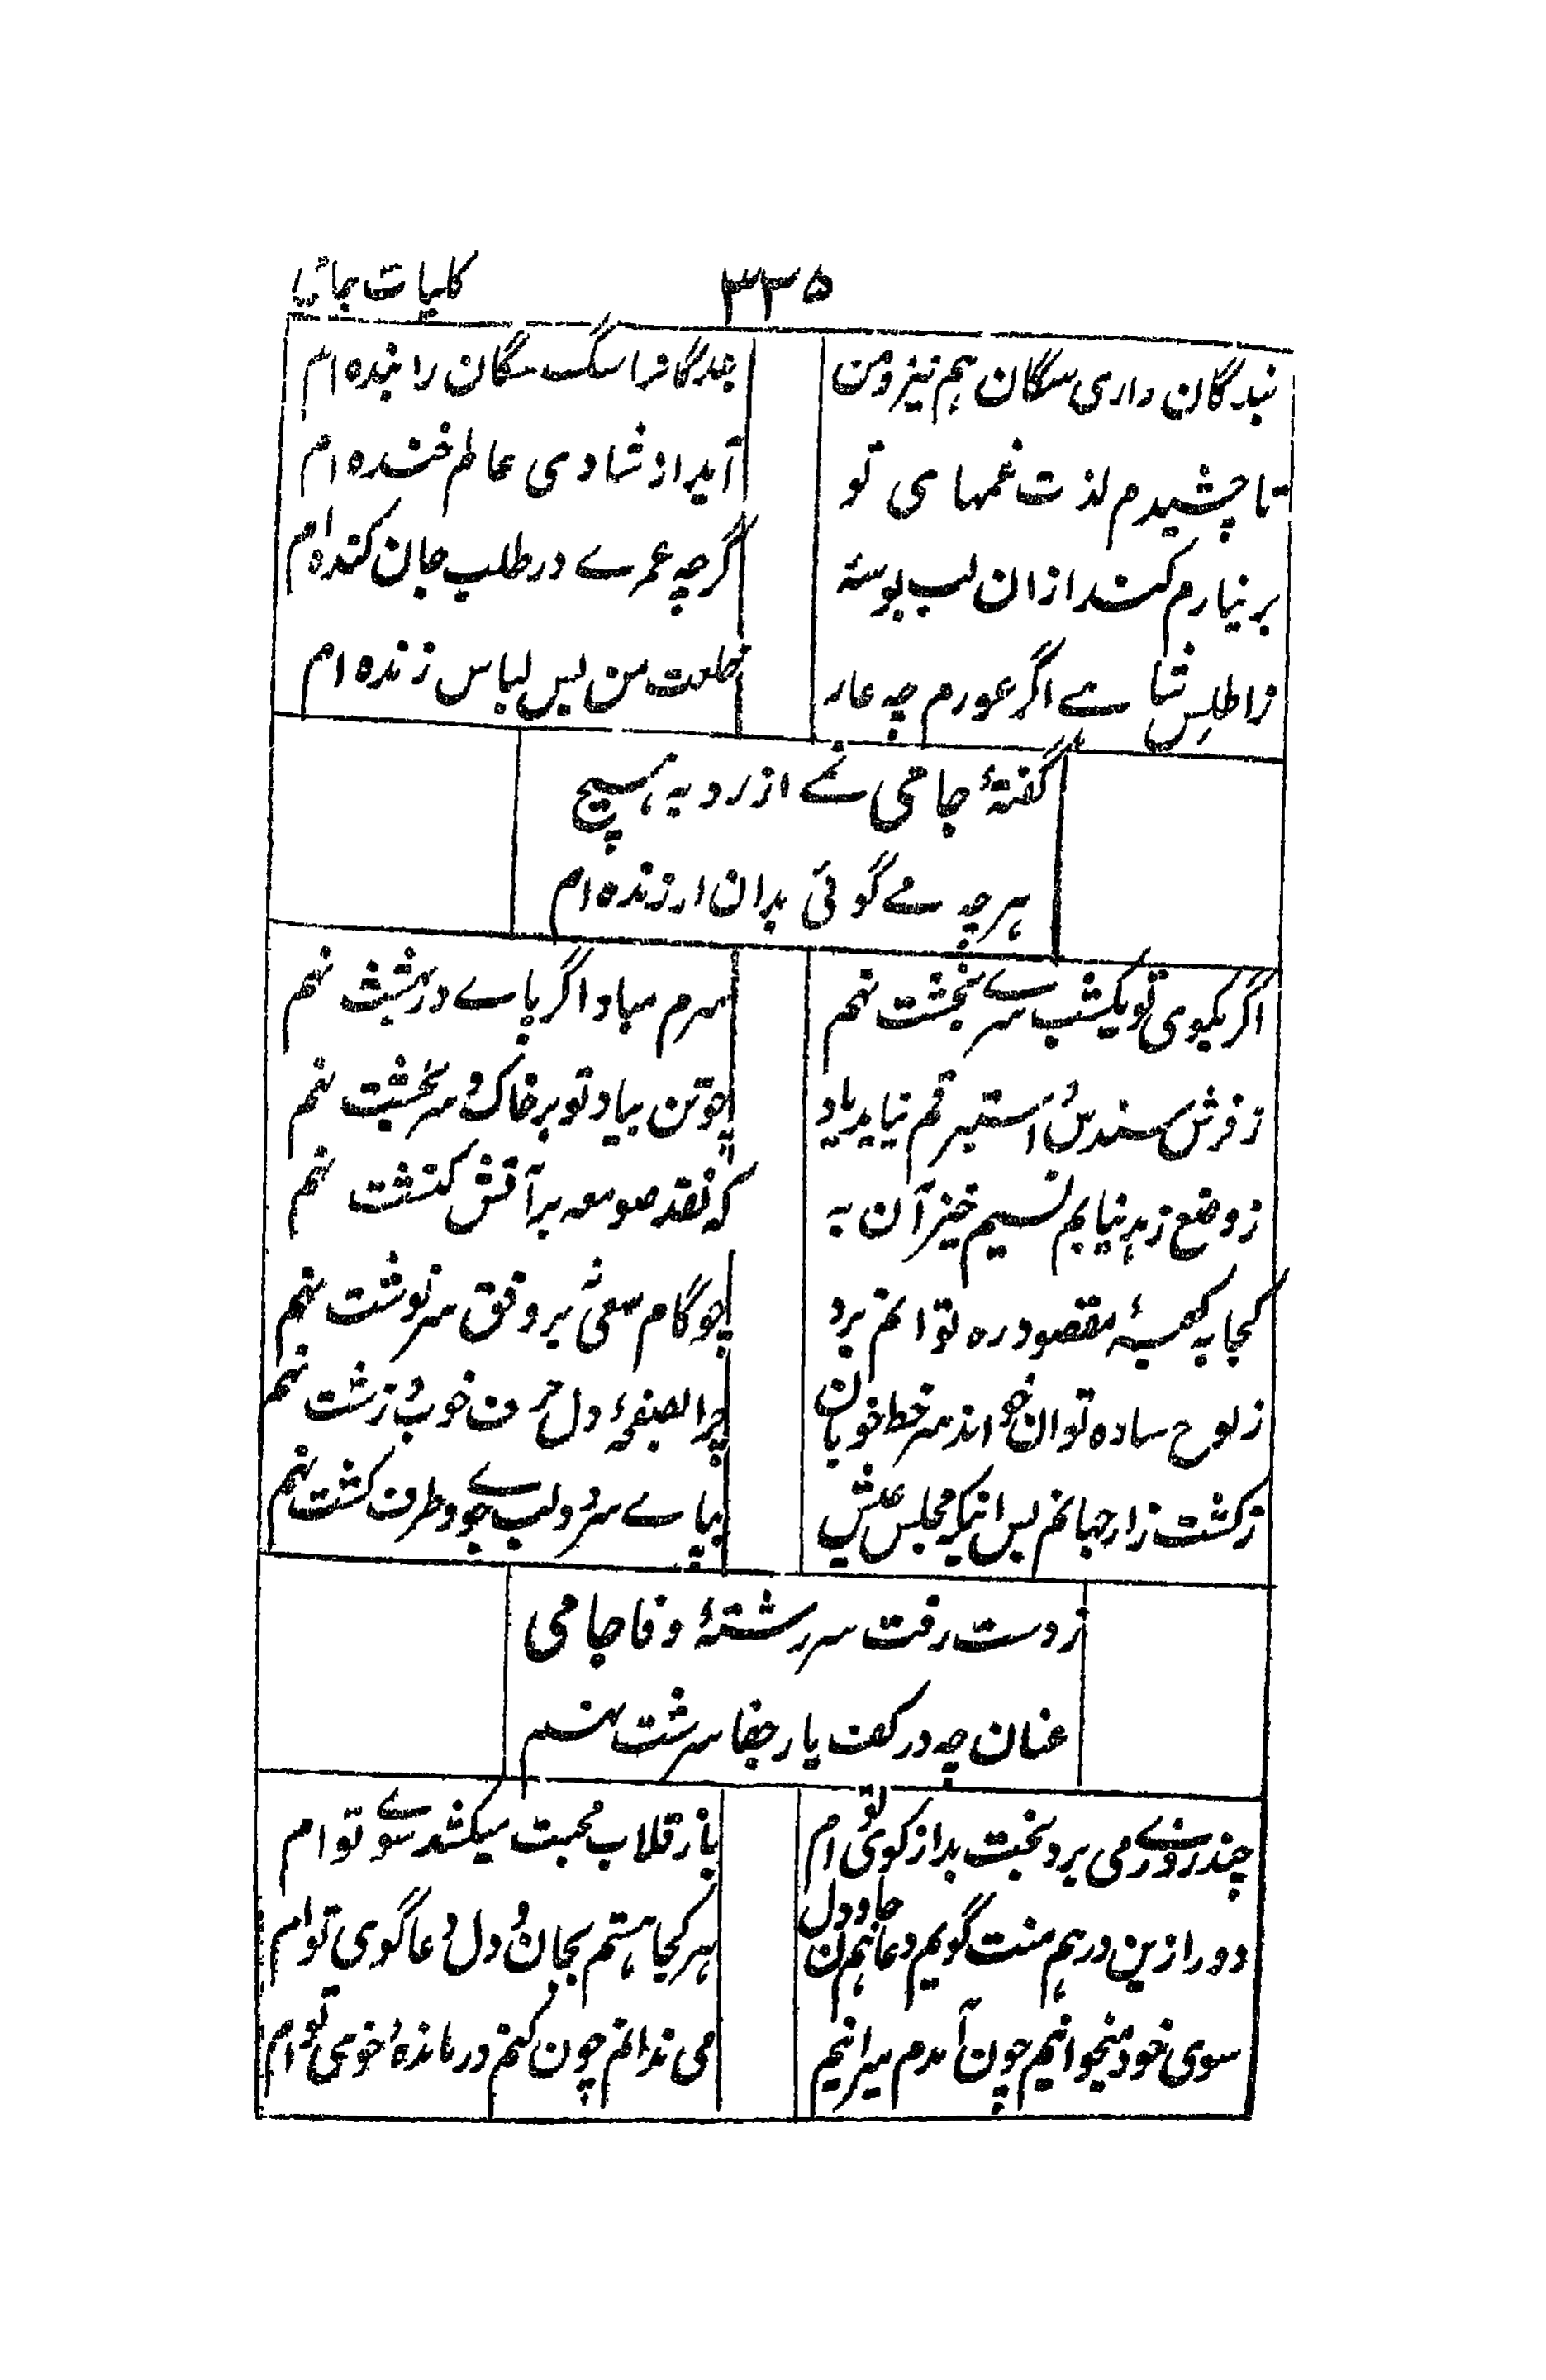 ۳۳۵
کلیات جامی
بندگان داری سگان هم نیز و من
بندگانرا سگ سگان را بنده ام
تا چشیدم لذت غمهای تو
آید از شادی عالم خنده ام
بر نیارم کند ازان لب بوسهٔ
گرچه عمرے در طلب جان کنده ام
ز اطلس شاہے اگر عورم چه عار
خلعت من بس لباس ژنده ام
گفتهٔ جامی نمے ارزد به هیچ
هرچه مے گوئی بدان ارزنده ام
اگر بکوی تو یکشب سرے بخشت نهم
سرم مباد اگر پاے در بهشت نهم
ز فرش سندس و استبرقم نیاید یاد
چو تن بیاد تو بر خاک و سر بخشت نهم
ز وضع زهد نیابم نسیم خیر آن به
که نقد صومعه بر آتش کنشت نهم
کجا به کعبهٔ مقصود ره توانم برد
چو گام سعی نه بر وفق سرنوشت نهم
ز لوح ساده توان خواند سر خط خوبان
چرا بصفحهٔ دل حرف خوب و زشت نهم
ز کشت زار جهانم بس اینکه مجلس عیش
بپاے سرو و لب جوے و طرف کشت نهم
ز دست رفت سر رشتهٔ وفا جامی
عنان چه در کف یار جفا سرشت نهم
چند روزے می برد بخت بد از کوی تو ام
باز قلاب محبت میکشد سوے تو ام
دور ازین در هم منت گویم دعا هم جان و دل
هر کجا هستم بجان و دل دعا گوی تو ام
سوی خود میخوانیم چون آمدم میرانیم
می ندانم چون کنم درماندهٔ خوی تو ام